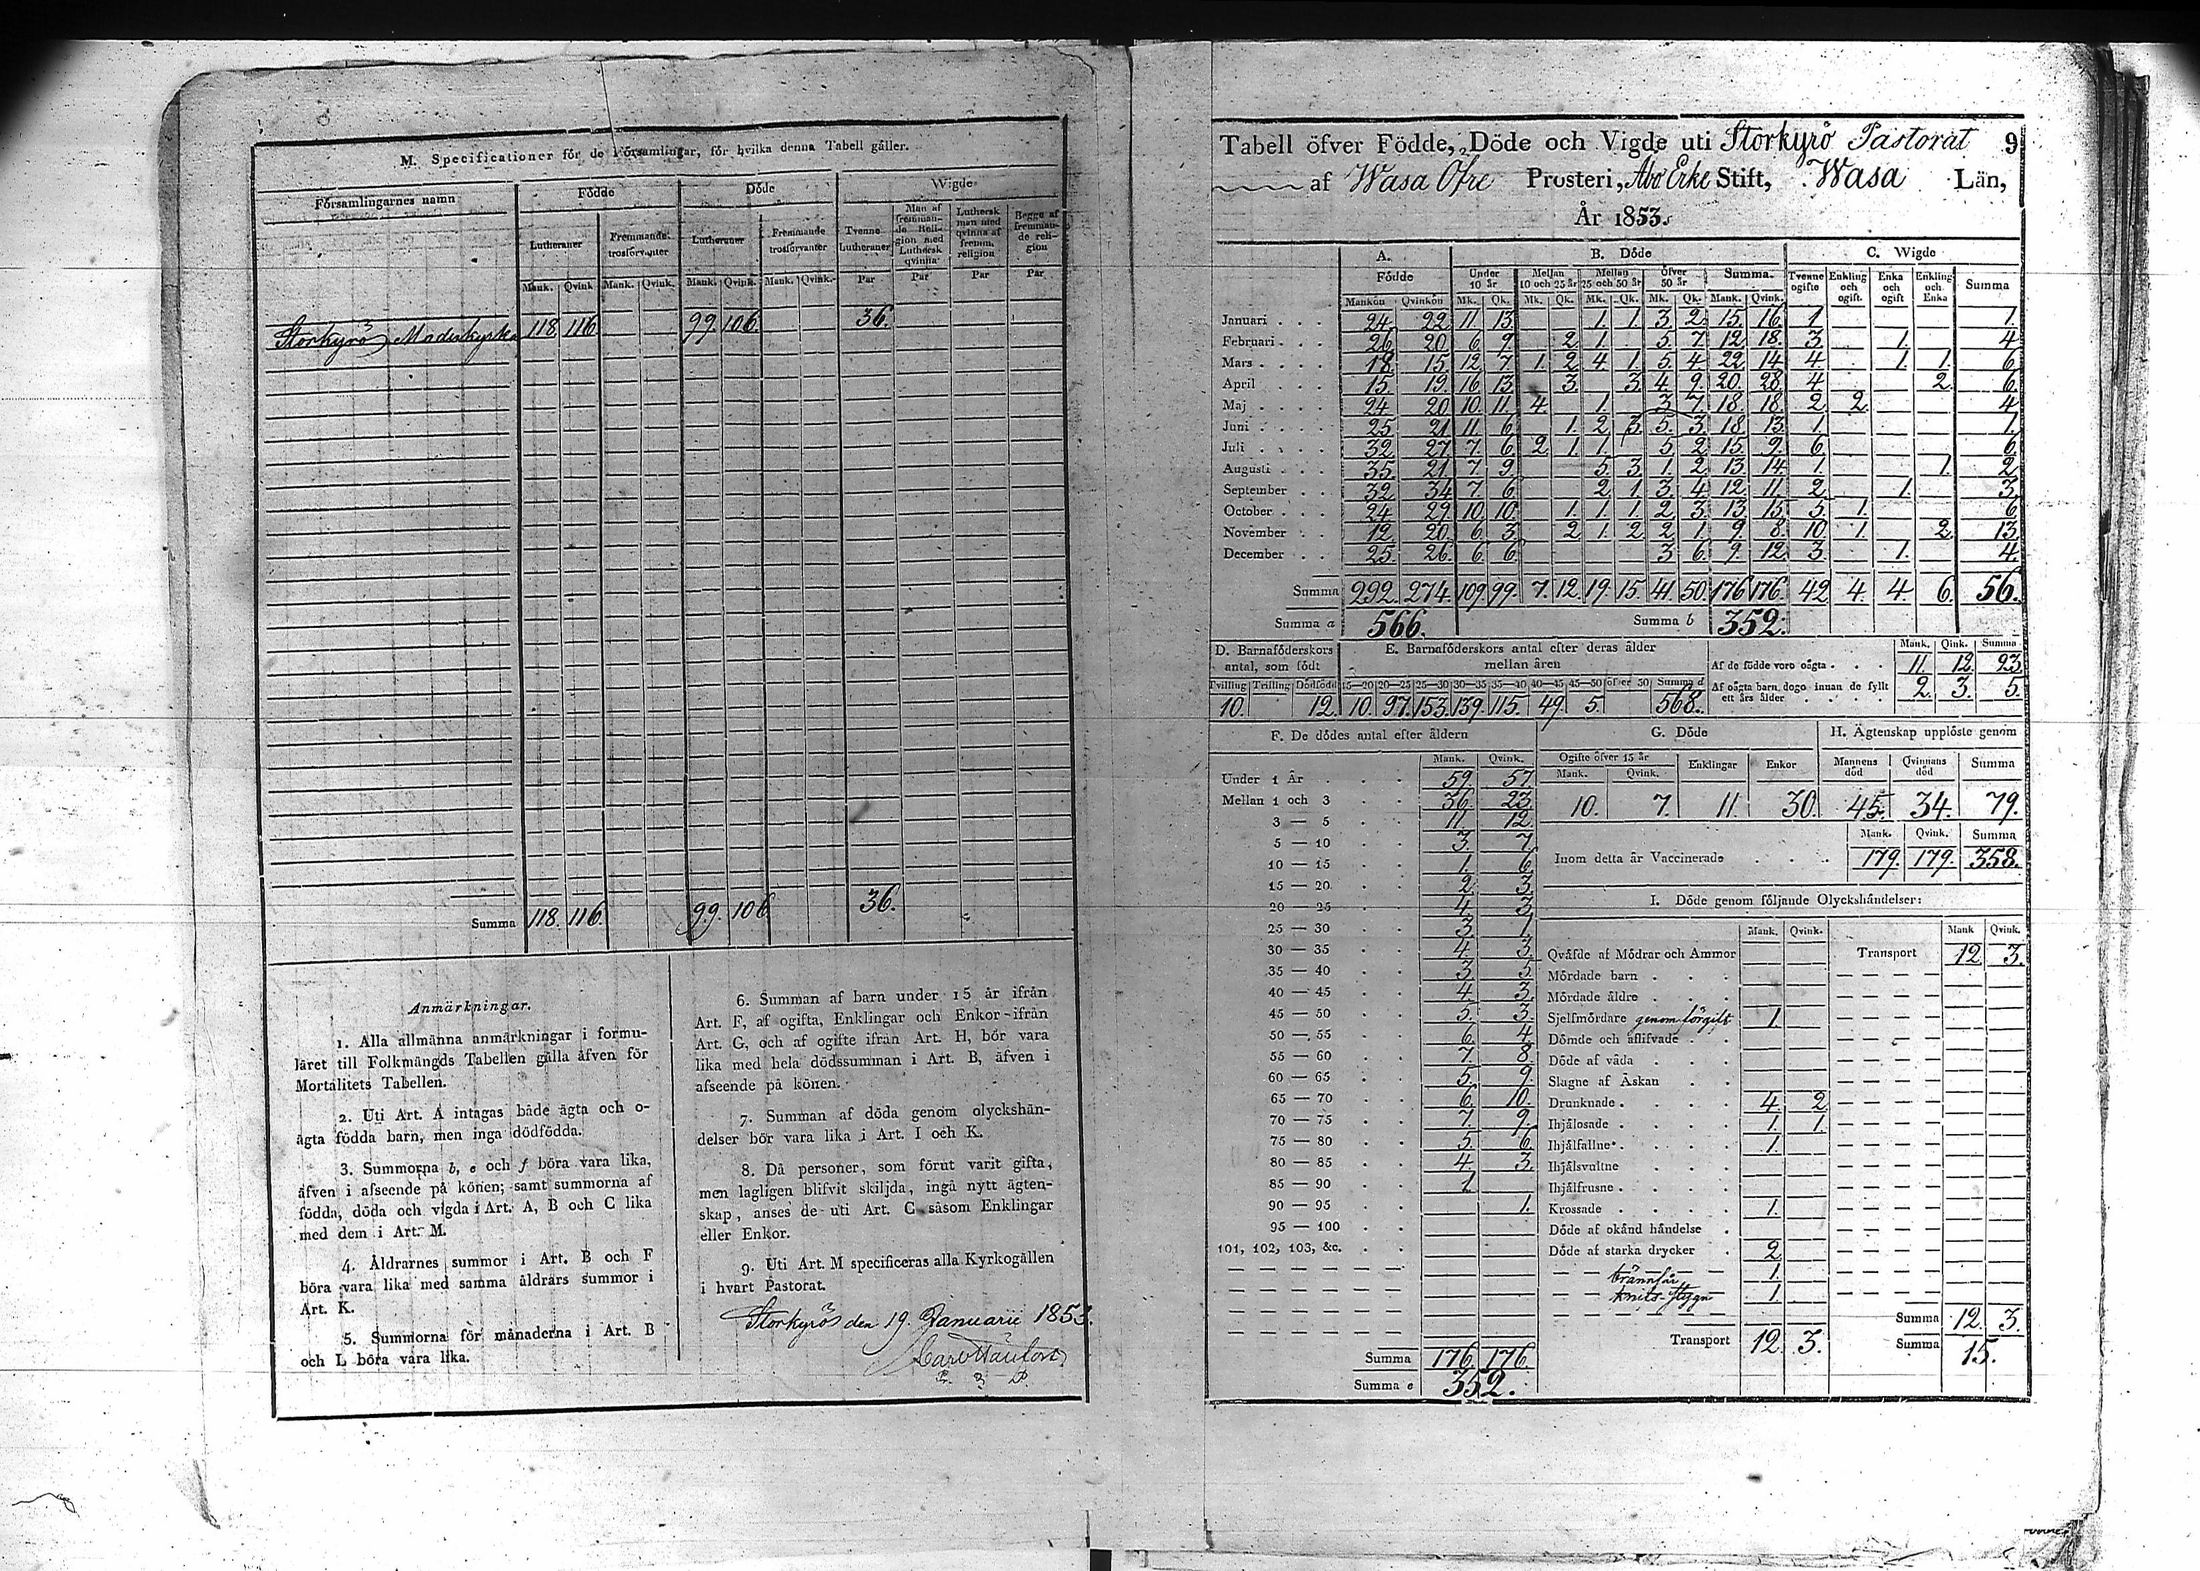 M. Specificationer för de Församlingar, för hvilka denna Tabell gäller.
Församlingarnes namn Födde Döde Wigde
Lutheraner Fremmande trosförvanter Lutheraner Fremmande trosförvanter Tvenne Lutheraner Man af fremmande Religion med Luthersk qvinna Luthersk man med qvinna af fremm. religion Begge af fremmande religion
Mank. Qvink. Mank. Qvink. Mank. Qvink. Mank. Qvink. Par Par Par Par
Storkyrö Moderkyrka 118 116 99. 106. 36.
Summa 118. 116. 99. 106 36.
Anmärkningar.
1. Alla allmänna anmärkningar i formu-
läret till Folkmängds Tabellen gälla äfven för
Mortalitets Tabellen.
2. Uti Art. A intagas både ägta och o-
ägta födda barn, men inga dödfödda.
3. Summorna b, e och f böra vara lika,
äfven i afseende på könen; samt summorna af
födda, döda och vigda i Art. A, B och C lika
med dem i Art. M.
4. Åldrarnes summor i Art. B och F
böra vara lika med samma åldrars summor i
Art. K.
5. Summorna för månaderna i Art. B
och L böra vara lika.
6. Summan af barn under 15 år ifrån
Art. F, af ogifta, Enklingar och Enkor ifrån
Art. G, och af ogifte ifrån Art. H, bör vara
lika med hela dödssumman i Art. B, äfven i
afseende på könen.
7. Summan af döda genom olyckshän-
delser bör vara lika i Art. I och K.
8. Då personer, som förut varit gifta,
men lagligen blifvit skiljda, ingå nytt ägten-
skap, anses de uti Art. C såsom Enklingar
eller Enkor.
9. Uti Art. M specificeras alla Kyrkogällen
i hvart Pastorat.
Storkyrö den 19. Januarii 1853.
Tabell öfver Födde, Döde och Vigde uti Storkyrö Pastorat 9
af Wasa Öfre Prosteri, Åbo Erke Stift, Wasa Län,
År 1853.
A. Födde B. Döde C. Wigde
Under 10 år Mellan 10 och 25 år Mellan 25 och 50 år Öfver 50 år Summa. Tvenne ogifte Enkling och ogift. Enka och ogift Enkling och Enka Summa
Mankön Qvinkön Mk. Qk. Mk. Qk. Mk. Qk. Mk. Qk. Mank. Qvink.
Januari 24 22 11 13 1. 1. 3 2 15. 16. 1 1.
Februari 26 20 6 9 2 1. 5 7 12 18. 3 1. 4
Mars 18 15 12 7 1. 2 4 1. 5 4 22 14 4 1. 1. 6
April 15. 19 16 13 3 3 4 9 20. 28 4 2 6
Maj 24 20 10. 11. 4 1. 3 7 18. 18. 2 2 4
Juni 25 21 11 6 1. 2 3 5. 3. 18 13. 1. 1.
Juli 32 27 7. 6 2 1. 1. 5 2 15. 9. 6 6
Augusti 35 21 7. 9 5 3 1. 2 13 14 1. 1. 2
September 32 34 7. 6 2 1. 3 4 12 11. 2 1. 3
October 24 29 10 10 1. 1. 1. 2 3 13 15 5 1. 6
November 12 20 6 3 2 1. 2 2 1. 9. 8. 10 1. 2 13.
December 25. 26 6 6 3 6. 9 12 3 1. 4.
Summa 292. 274. 109 99 7. 12. 19. 15. 41. 50. 176 176. 42 4. 4. 6. 56.
Summa a 566. Summa b 352.
D. Barnaföderskors antal, som födt
Tvilling Trilling Dödfödt
10. 12.
E. Barnaföderskors antal efter deras ålder mellan åren
15—20 20—25 25—30 30—35 35—40 40—45 45—50 öfver 50 Summa d
10. 97. 153. 139. 115. 49. 5. 568.
Mank. Qink. Summa
Af de födde voro oägta 11. 12. 23
Af oägta barn dogo innan de fyllt ett års ålder 2. 3. 5.
F. De dödes antal efter åldern
Mank. Qvink.
Under 1 År 59. 57.
Mellan 1 och 3 36. 23
3 — 5 11. 12
5 — 10 3. 7.
10 — 15 1. 6
15 — 20 2. 3.
20 — 25 4. 3
25 — 30 3. 1.
30 — 35 4. 3.
35 — 40 3. 5
40 — 45 4 3.
45 — 50 5. 3.
50 — 55 6. 4
55 — 60 7. 8.
60 — 65 5. 9.
65 — 70 6. 10.
70 — 75 7. 9.
75 — 80 5. 6
80 — 85 4. 3.
85 — 90 1
90 — 95 1.
95 — 100
101, 102, 103, &c.
Summa 176. 176.
Summa e 352.
G. Döde
Ogifte öfver 15 år Enklingar Enkor
Mank. Qvink.
10. 7. 11. 30.
H. Ägtenskap upplöste genom
Mannens död Qvinnans död Summa
45. 34. 79.
Mank. Qvink. Summa
Inom detta år Vaccinerade 179. 179. 358.
I. Döde genom följande Olyckshändelser:
Mank. Qvink. Mank Qvink.
Qväfde af Mödrar och Ammor Transport 12 3.
Mördade barn
Mördade äldre
Sjelfmördare genom förgift 1.
Dömde och aflifvade
Döde af våda
Slagne af Åskan
Drunknade 4 2
Ihjälosade 1. 1.
Ihjälfallne 1.
Ihjälsvultne
Ihjälfrusne
Krossade 1.
Döde af okänd händelse
Döde af starka drycker 2
brännsår 1.
knifs-stygn 1
Summa 12. 3.
Transport 12. 3. Summa 15.